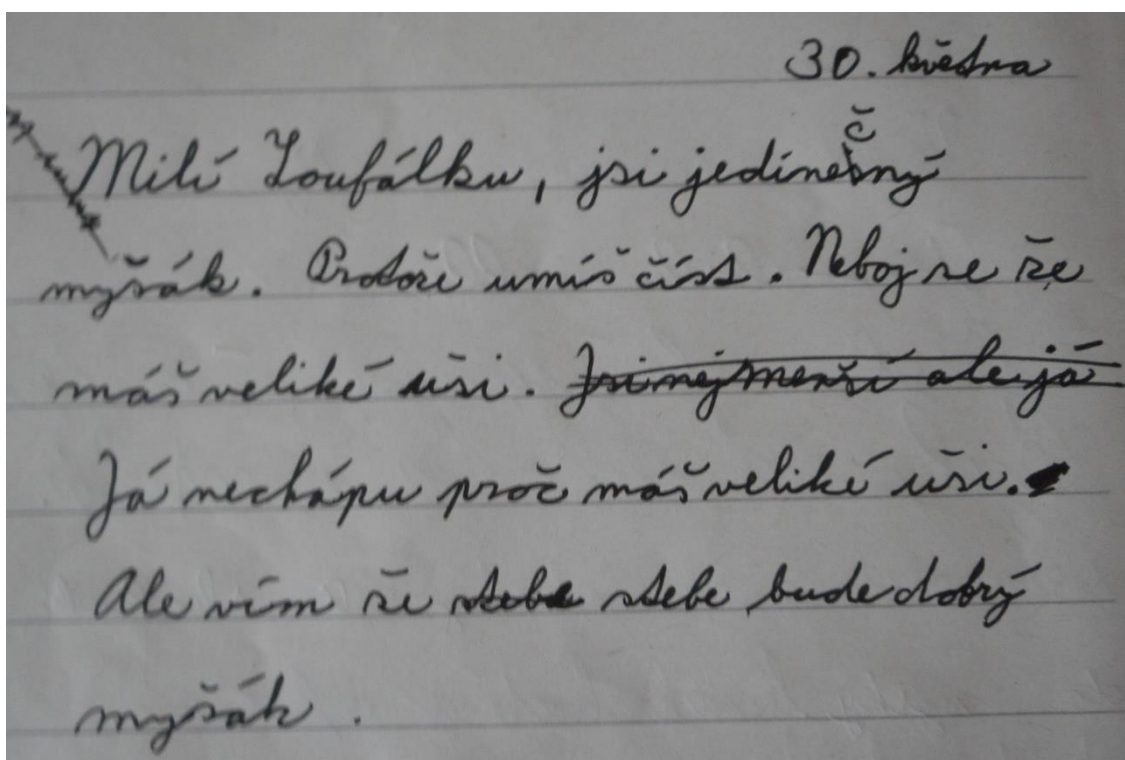 30. května
Milí Zoufálku, jsi jedinečný
myšák. Protože umíš číst. Neboj se že
máš veliké uši. Jsi nejmenší ale já
Já nechápu proč máš veliké uši.
Ale vím že stebe stebe bude dobrý
myšák.